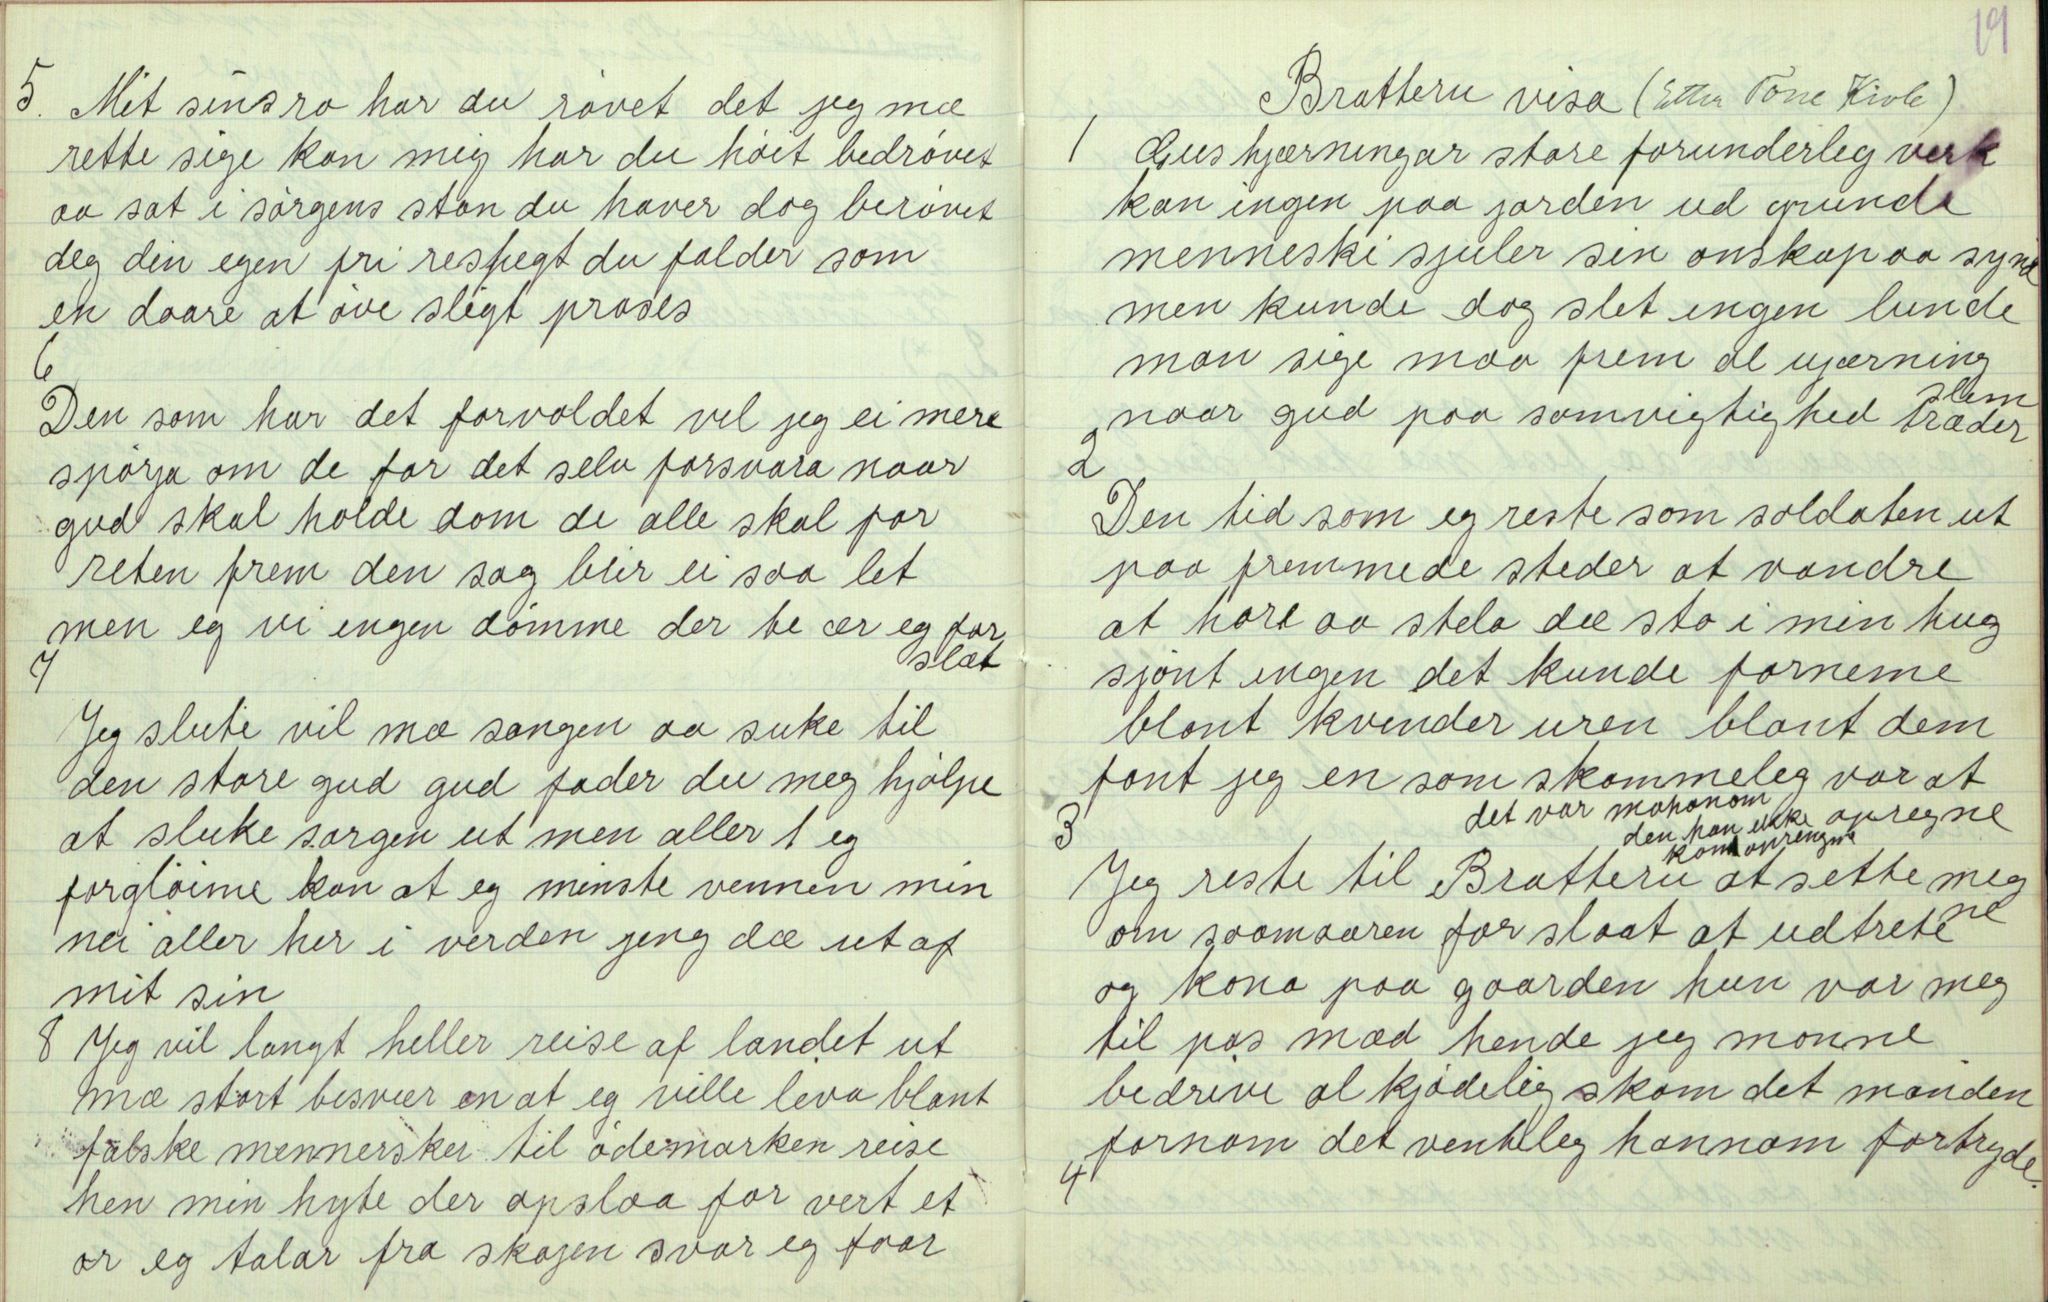 5. Mit sinsro har du røvet det jeg mæ
rette sige kan mig har du høit bedrøvet
aa sat i sørgens stan du haver dog berøvet
deg din egen fri respegt du falder som
en daare at øve sligt proses
6
Den som har det forvoldet vel jeg ei mere
spørja om de for det selv forsvara naar
gud skal holde dom de alle skal for
reten frem den sag blir ei saa let
men eg vi engen dømme der te ær eg for
slæt
7
Jeg slute vil mæ sangen aa suke til
den store gud gud fader du meg hjølpe
at sluke sorgen ut men aller 1 eg
forgløime kan at eg minste vennen min
nei aller her i verden jeng dæ ut af
mit sin
8 Jeg vil langt heller reise af landet ut
mæ stort besvær en at eg ville leva blant
falske mennersker til ødemarken reise
hen min hyte der opslaa for vert et
or eg talar fra skogen svar eg faar
19
Bratteru visa (Etter Tone Kivle)
1 Gus hjærningar store forunderleg verk
kan ingen paa jorden ud grunde
menneski sjuler sin onskap aa synd
men kunde dog slet engen lunde
man sige maa frem al ujærning
slem
naar gud paa samvigtighed træder
2
Den tid som eg reste som soldaten ut
paa fremmede steder at vandre
at hore aa stela dæ sto i min hug
sjønt engen det kunde forneme
blant kvender uren blant dem
font jeg en som skammeleg var at
opregne
det var mohonom
den han ikke
kan oprengne
3
Jeg reste til Bratteru at sette meg
ne
om soomaaren for slaat at udtrete
og kona paa gaarden hun var meg
til pas mæd hende jeg monne
bedrive al kjødelig skam det manden
fornam det venteleg hannom fortryde.
4